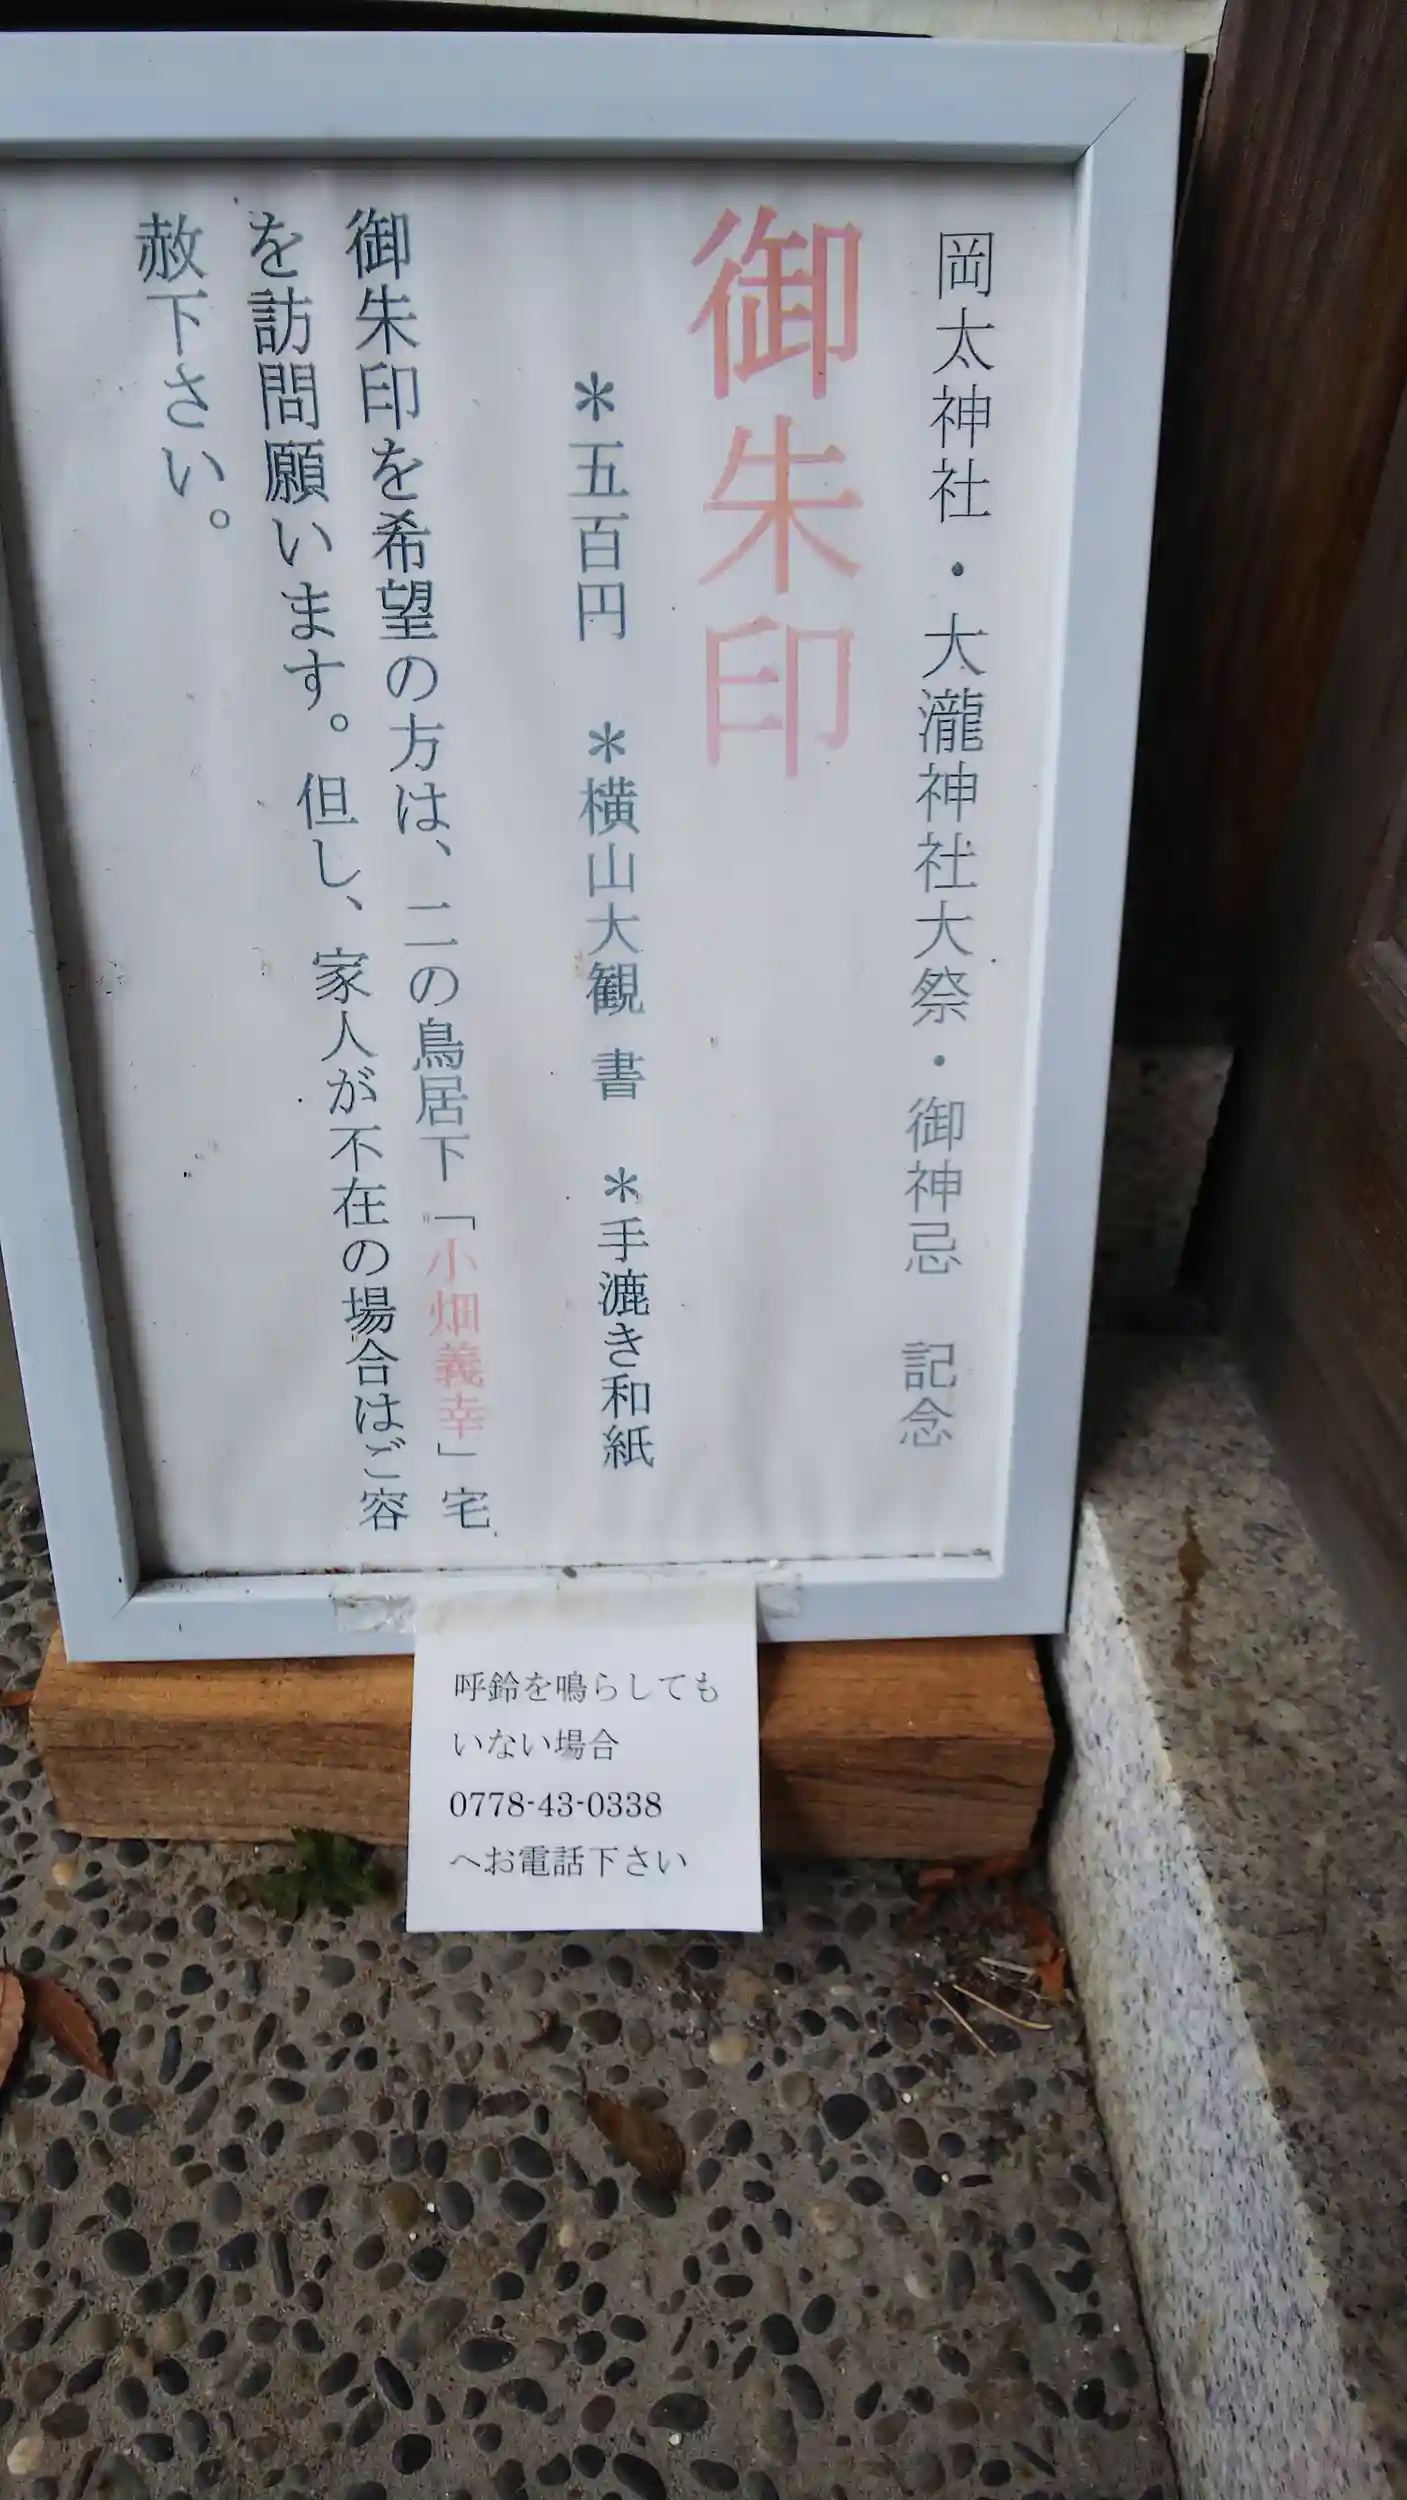 岡太神社・大瀧神社大祭・御神忌 記念
御朱印
＊五百円 ＊横山大観 書 ＊手漉き和紙
御朱印を希望の方は、二の鳥居下「小畑義幸」宅
を訪問願います。但し、家人が不在の場合はご容
赦下さい。
呼鈴を鳴らしても
いない場合
0778-43-0338
へお電話下さい